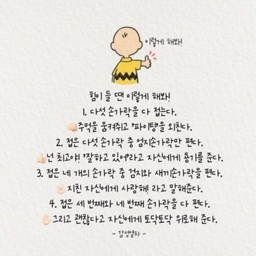 이렇게 해봐!
힘이 들 땐 이렇게 해봐!
1. 다섯 손가락을 다 접는다.
주먹을 움켜쥐고 '파이팅'을 외친다.
2. 접은 다섯 손가락 중 엄지손가락만 편다.
넌 최고야! 잘하고 있어!라고 자신에게 용기를 준다.
3. 접은 네 개의 손가락 중 검지와 새끼손가락을 편다.
지친 자신에게 사랑해! 라고 말해준다.
4. 접은 세 번째와 네 번째 손가락을 다 편다.
그리고 괜찮다고 자신에게 토닥토닥 위로해 준다.